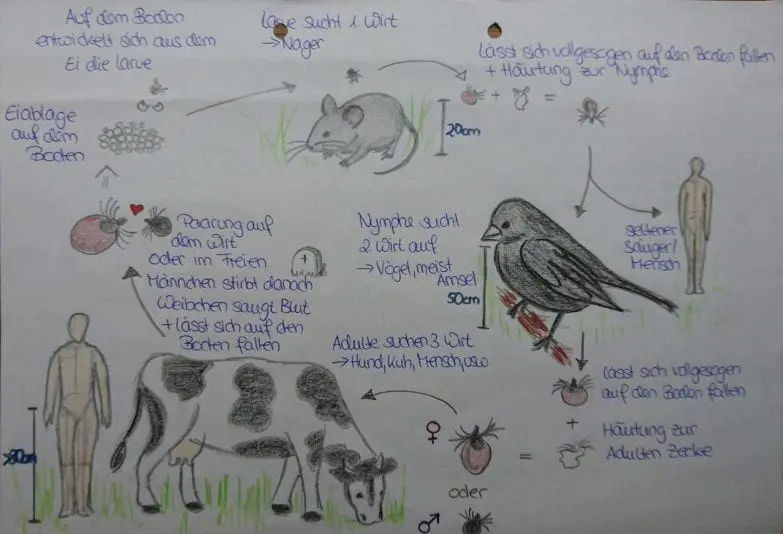 Auf dem Boden
entwickelt sich aus dem
Ei die Larve
Larve sucht 1. Wirt
→ Nager
Lässt sich vollgesogen auf den Boden fallen
+ Häutung zur Nymphe
+ =
Eiablage
auf dem
Boden
20cm
seltener
Säuger/
Mensch
Nymphe sucht
2 Wirt auf
→ Vögel, meist
Amsel
50cm
Paarung auf
dem Wirt
oder im Freien
Männchen stirbt danach
Weibchen saugt Blut
+ Lässt sich auf den
Boden fallen
Adulte suchen 3. Wirt
→ Hund, Kuh, Mensch, usw
Lässt sich vollgesogen
auf den Boden fallen
+ Häutung zur
Adulten Zecke
♀ =
oder
♂